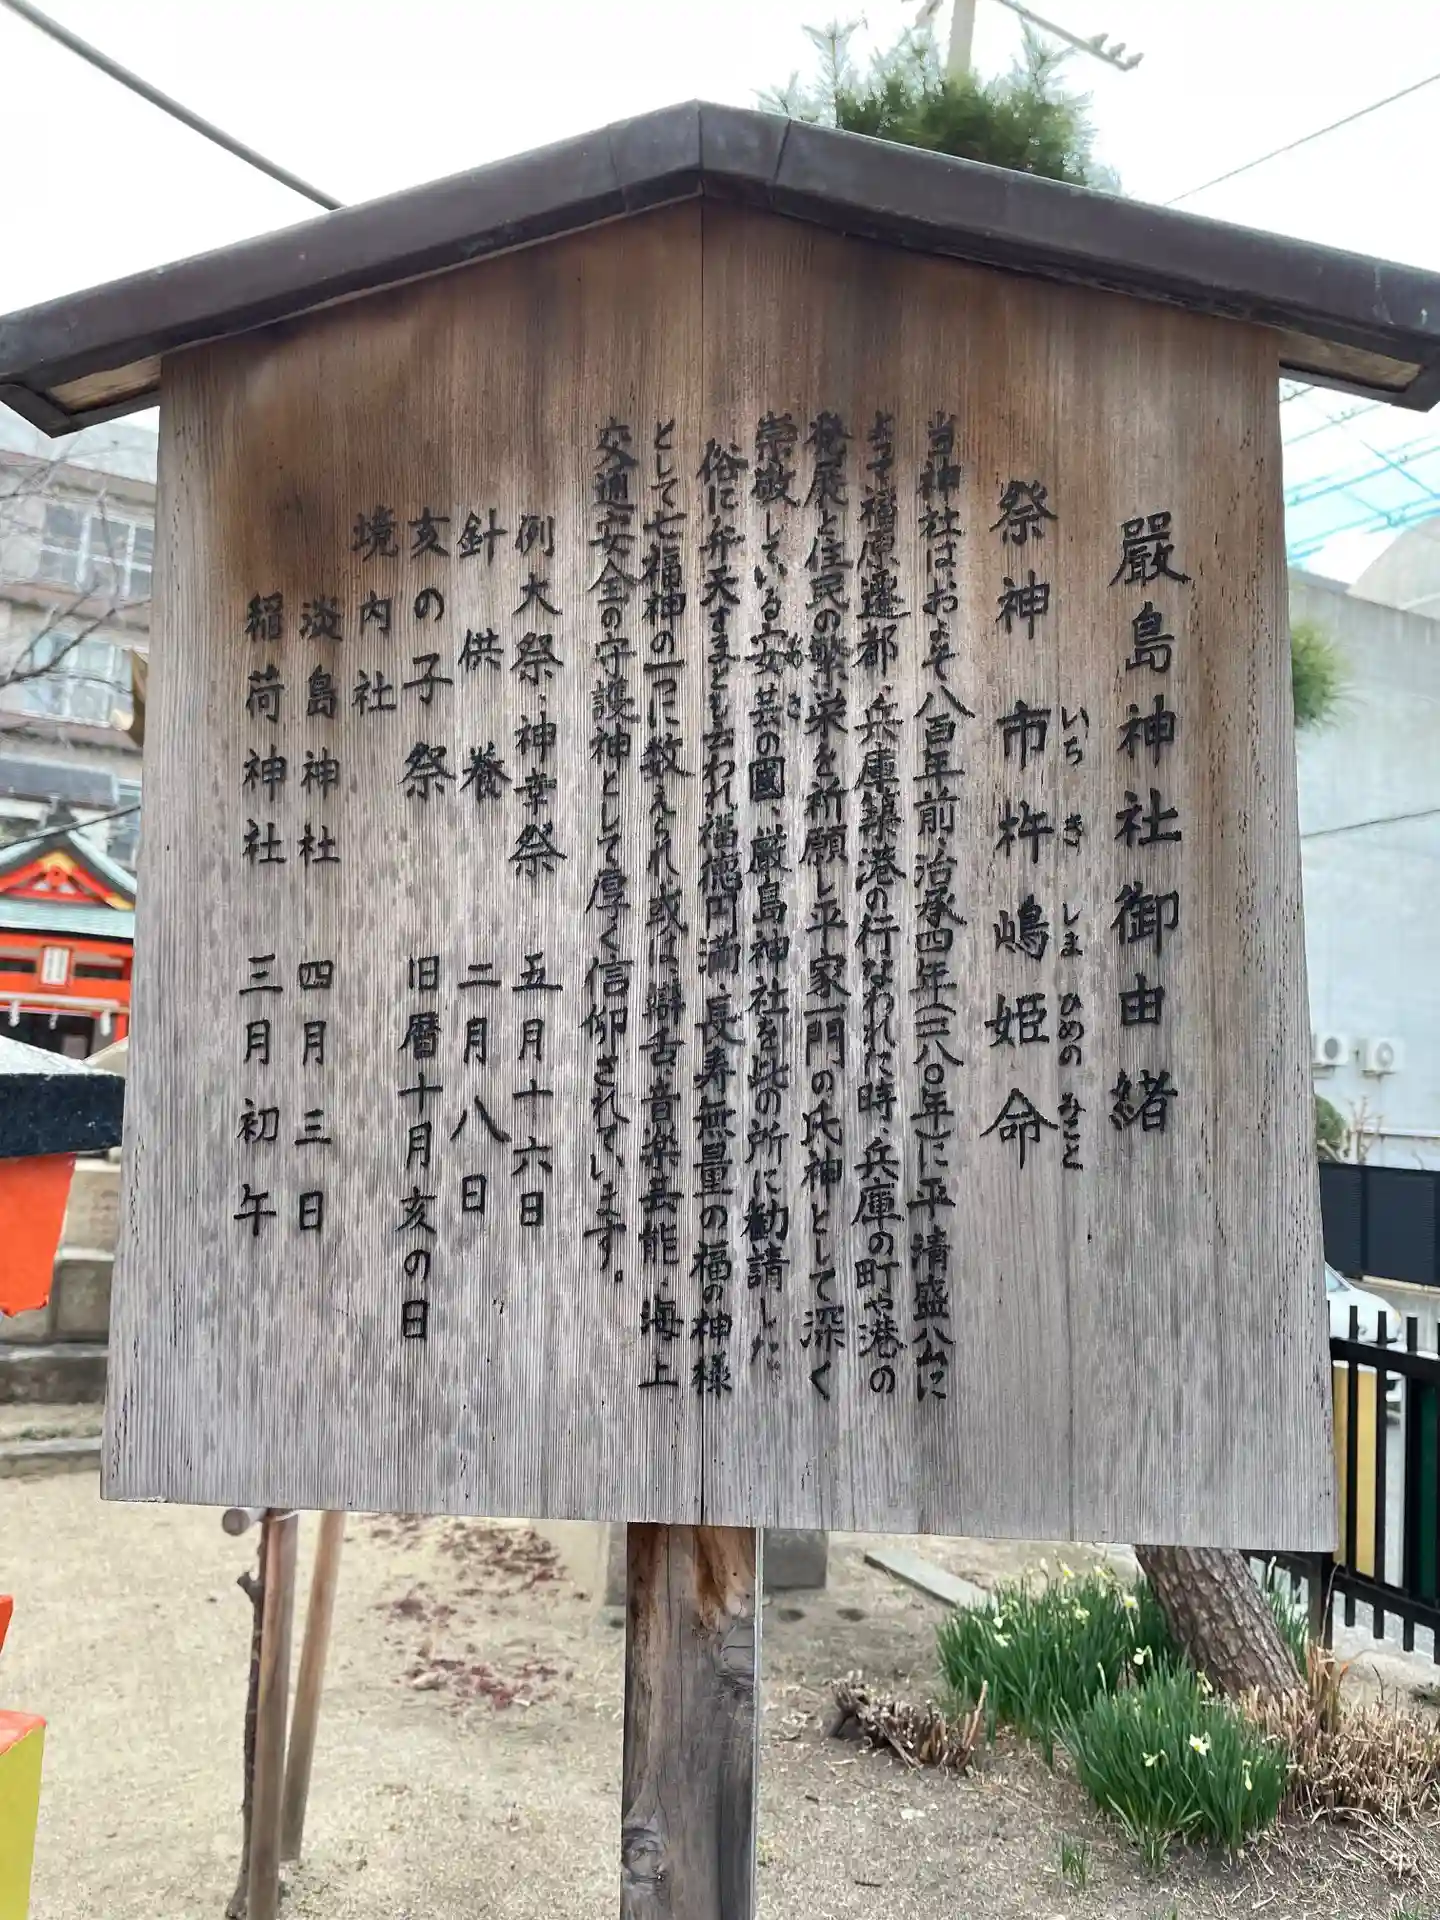 嚴島神社御由緒
祭神 市杵嶋姫命
いち き しま ひめの みこと
当神社はおよそ八百年前、治承四年(一一八〇年)に平清盛公に
よって福原遷都、兵庫築港の行なわれた時、兵庫の町や港の
発展と住民の繁栄を祈願し平家一門の氏神として深く
崇敬している安芸の國、厳島神社を此の所に勧請した。
俗に弁天さまとも云われ福徳円満、長寿無量の福の神様
として七福神の一つに数えられ或は、辯舌・音楽芸能・海上
交通安全の守護神として厚く信仰されています。
例大祭・神幸祭 五月十六日
針供養 二月八日
亥の子祭 旧暦十月亥の日
境内社
淡島神社 四月三日
稲荷神社 三月初午